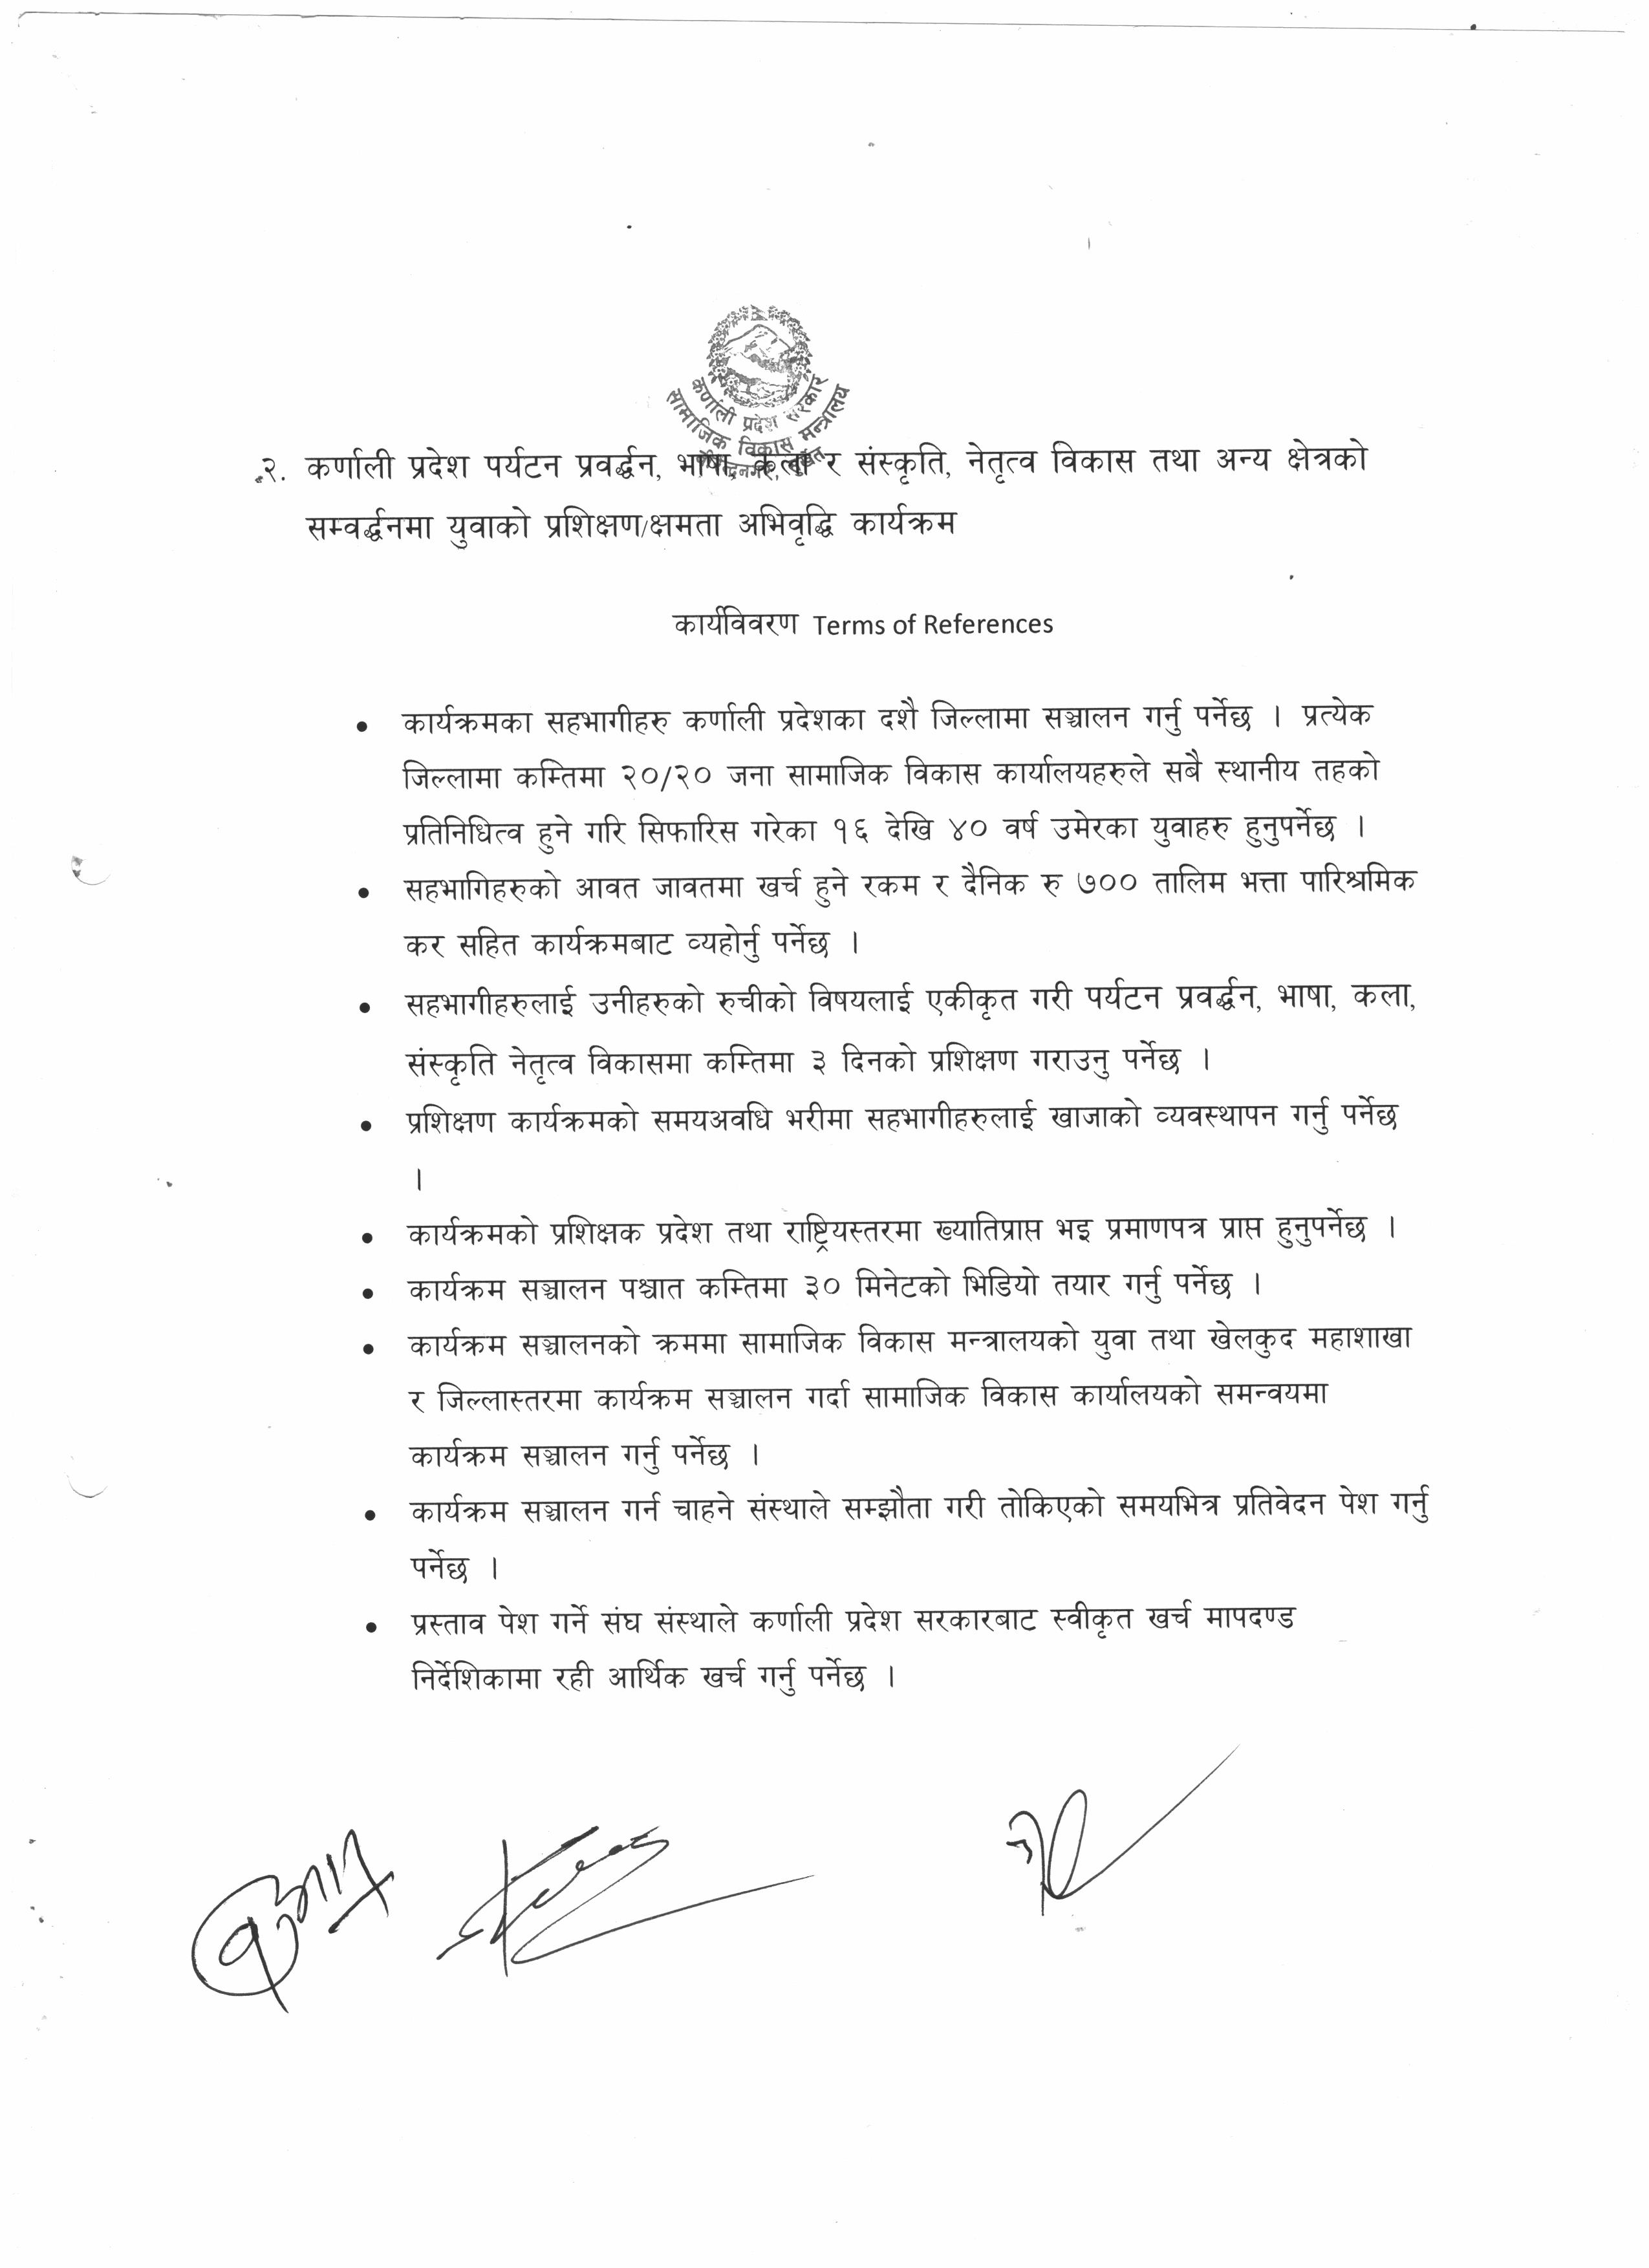 कर्णाली प्रदेश सरकार
सामाजिक विकास मन्त्रालय
२. कर्णाली प्रदेश पर्यटन प्रवर्द्धन, भाषा, कला र संस्कृति, नेतृत्व विकास तथा अन्य क्षेत्रको
सम्वर्द्धनमा युवाको प्रशिक्षण/क्षमता अभिवृद्धि कार्यक्रम
कार्यविवरण Terms of References
• कार्यक्रमका सहभागीहरु कर्णाली प्रदेशका दशै जिल्लामा सञ्चालन गर्नु पर्नेछ । प्रत्येक
जिल्लामा कम्तिमा २०/२० जना सामाजिक विकास कार्यालयहरुले सबै स्थानीय तहको
प्रतिनिधित्व हुने गरि सिफारिस गरेका १६ देखि ४० वर्ष उमेरका युवाहरु हुनुपर्नेछ ।
• सहभागिहरुको आवत जावतमा खर्च हुने रकम र दैनिक रु ७०० तालिम भत्ता पारिश्रमिक
कर सहित कार्यक्रमबाट व्यहोर्नु पर्नेछ ।
• सहभागीहरुलाई उनीहरुको रुचीको विषयलाई एकीकृत गरी पर्यटन प्रवर्द्धन, भाषा, कला,
संस्कृति नेतृत्व विकासमा कम्तिमा ३ दिनको प्रशिक्षण गराउनु पर्नेछ ।
• प्रशिक्षण कार्यक्रमको समयअवधि भरीमा सहभागीहरुलाई खाजाको व्यवस्थापन गर्नु पर्नेछ
।
• कार्यक्रमको प्रशिक्षक प्रदेश तथा राष्ट्रियस्तरमा ख्यातिप्राप्त भइ प्रमाणपत्र प्राप्त हुनुपर्नेछ ।
• कार्यक्रम सञ्चालन पश्चात कम्तिमा ३० मिनेटको भिडियो तयार गर्नु पर्नेछ ।
• कार्यक्रम सञ्चालनको क्रममा सामाजिक विकास मन्त्रालयको युवा तथा खेलकुद महाशाखा
र जिल्लास्तरमा कार्यक्रम सञ्चालन गर्दा सामाजिक विकास कार्यालयको समन्वयमा
कार्यक्रम सञ्चालन गर्नु पर्नेछ ।
• कार्यक्रम सञ्चालन गर्न चाहने संस्थाले सम्झौता गरी तोकिएको समयभित्र प्रतिवेदन पेश गर्नु
पर्नेछ ।
• प्रस्ताव पेश गर्ने संघ संस्थाले कर्णाली प्रदेश सरकारबाट स्वीकृत खर्च मापदण्ड
निर्देशिकामा रही आर्थिक खर्च गर्नु पर्नेछ ।